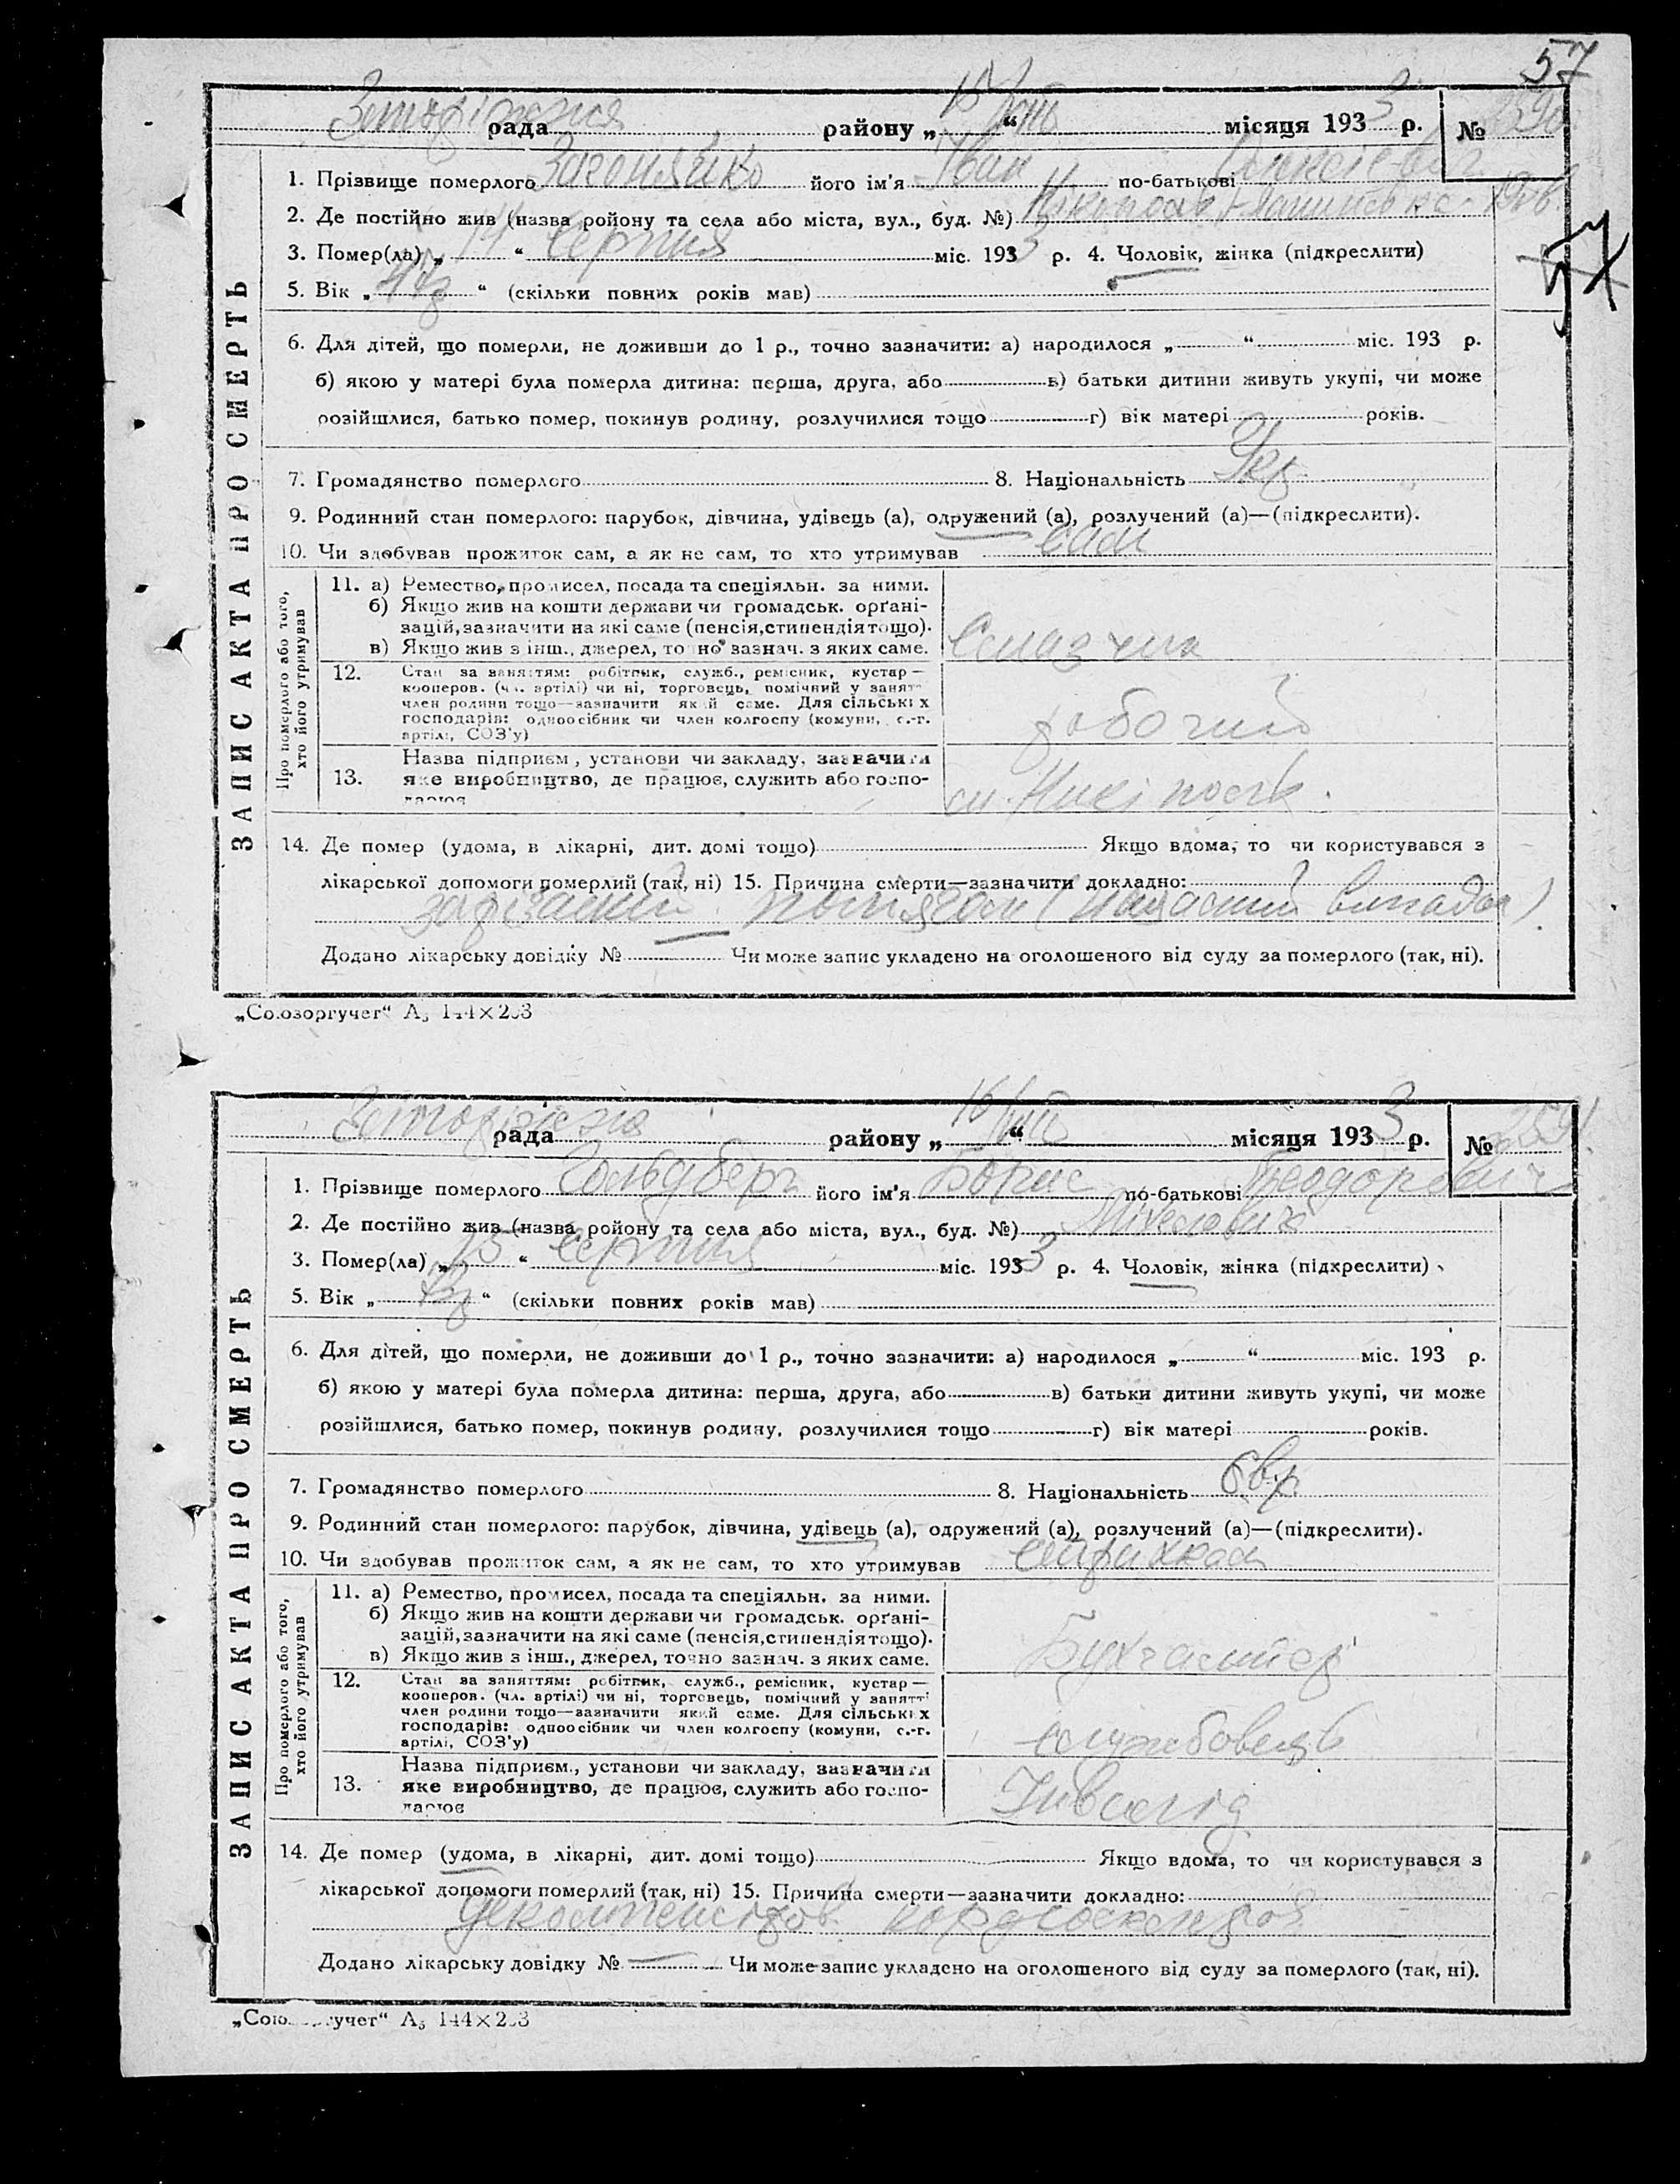 57
рада району „15/VIII“ місяця 1933 р. №
1. Прізвище померлого його ім'я Іван по-батькові
2. Де постійно жив (назва ройону та села або міста, вул., буд. №)
3. Помер(ла) „14“ серпня міс. 1933 р. 4. Чоловік, жінка (підкреслити)
57
5. Вік „ “ (скільки повних років мав)
6. Для дітей, що померли, не доживши до 1 р., точно зазначити: а) народилося „ “ міс. 193 р.
б) якою у матері була померла дитина: перша, друга, або в) батьки дитини живуть укупі, чи може
розійшлися, батько помер, покинув родину, розлучилися тощо г) вік матері років.
7. Громадянство померлого 8. Національність Укр
9. Родинний стан померлого: парубок, дівчина, удівець (а), одружений (а), розлучений (а)—(підкреслити).
10. Чи здобував прожиток сам, а як не сам, то хто утримував сам
ЗАПИС АКТА ПРО СМЕРТЬ
Про померлого або того,
хто його утримував
11. а) Ремество, промисел, посада та спеціяльн. за ними.
б) Якщо жив на кошти держави чи громадськ. орґані-
зацій, зазначити на які саме (пенсія, стипендія тощо).
в) Якщо жив з інш., джерел, точно зазнач. з яких саме.
Смазчик
12. Стан за заняттям: робітник, служб., ремісник, кустар—
кооперов. (чл. артілі) чи ні, торговець, помічний у занят
член родини тощо—зазначити який саме. Для сільських
господарів: одноосібник чи член колгоспу (комуни, с.-г.
артілі, СОЗ'у)
робочий
13. Назва підприєм., установи чи закладу, зазначити
яке виробництво, де працює, служить або госпо-
дарює
14. Де помер (удома, в лікарні, дит. домі тощо) Якщо вдома, то чи користувався з
лікарської допомоги померлий (так, ні) 15. Причина смерти—зазначити докладно:
зарізаний потягом (нещасний випадок)
Додано лікарську довідку № Чи може запис укладено на оголошеного від суду за померлого (так, ні).
„Союзоргучет“ А₅ 144×203
рада району „16/VIII“ місяця 1933 р. №
1. Прізвище померлого Гольдберг його ім'я Борис по-батькові Теодорович
2. Де постійно жив (назва ройону та села або міста, вул., буд. №)
3. Помер(ла) „15“ серпня міс. 1933 р. 4. Чоловік, жінка (підкреслити)
5. Вік „ “ (скільки повних років мав)
6. Для дітей, що померли, не доживши до 1 р., точно зазначити: а) народилося „ “ міс. 193 р.
б) якою у матері була померла дитина: перша, друга, або в) батьки дитини живуть укупі, чи може
розійшлися, батько помер, покинув родину, розлучилися тощо г) вік матері років.
7. Громадянство померлого 8. Національність Євр
9. Родинний стан померлого: парубок, дівчина, удівець (а), одружений (а), розлучений (а)—(підкреслити).
10. Чи здобував прожиток сам, а як не сам, то хто утримував страхкаса
ЗАПИС АКТА ПРО СМЕРТЬ
Про померлого або того,
хто його утримував
11. а) Ремество, промисел, посада та спеціяльн. за ними.
б) Якщо жив на кошти держави чи громадськ. орґані-
зацій, зазначити на які саме (пенсія, стипендія тощо).
в) Якщо жив з інш., джерел, точно зазнач. з яких саме.
Бухгалтер
12. Стан за заняттям: робітник, служб., ремісник, кустар—
кооперов. (чл. артілі) чи ні, торговець, помічний у занятті
член родини тощо—зазначити який саме. Для сільських
господарів: одноосібник чи член колгоспу (комуни, с.-г.
артілі, СОЗ'у)
службовець
13. Назва підприєм., установи чи закладу, зазначити
яке виробництво, де працює, служить або госпо-
дарює
Інвалід
14. Де помер (удома, в лікарні, дит. домі тощо) Якщо вдома, то чи користувався з
лікарської допомоги померлий (так, ні) 15. Причина смерти—зазначити докладно:
Додано лікарську довідку № Чи може запис укладено на оголошеного від суду за померлого (так, ні).
„Союзоргучет“ А₅ 144×203